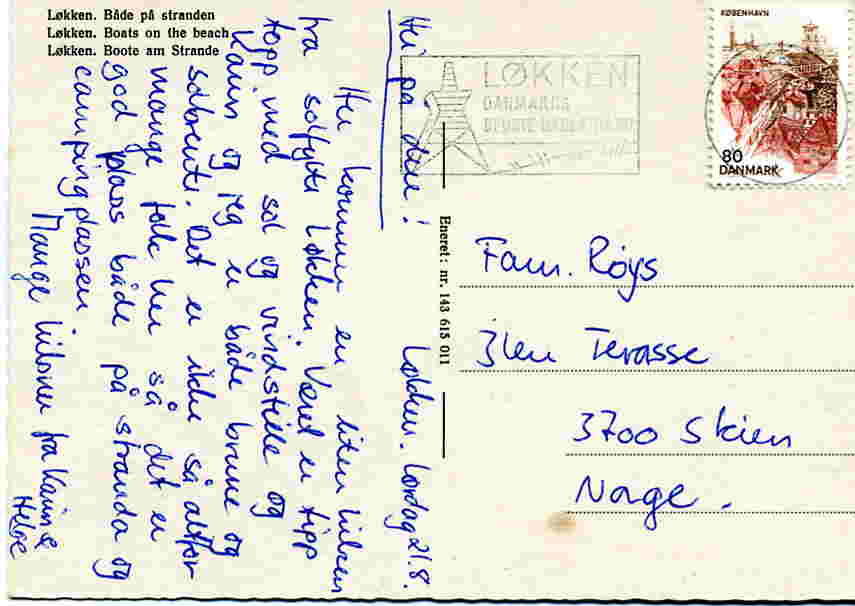 Løkken. Både på stranden
Løkken. Boats on the beach
Løkken. Boote am Strande
Hei på dere!
Løkken. Lørdag 21.8.
Her kommer en liten hilsen
fra solfylte Løkken. Været er tipp
topp med sol og vindstille og
Karin og jeg er både brune og
solbrente. Det er ikke så altfor
mange folk her så det er
god plass både på stranda og
campingplassen
Mange hilsner fra Karin &
Helge
Eneret: nr. 143 615 011
LØKKEN
DANMARKS
KØBENHAVN
80
DANMARK
Fam. Røys
Terasse
3700 Skien
Norge.